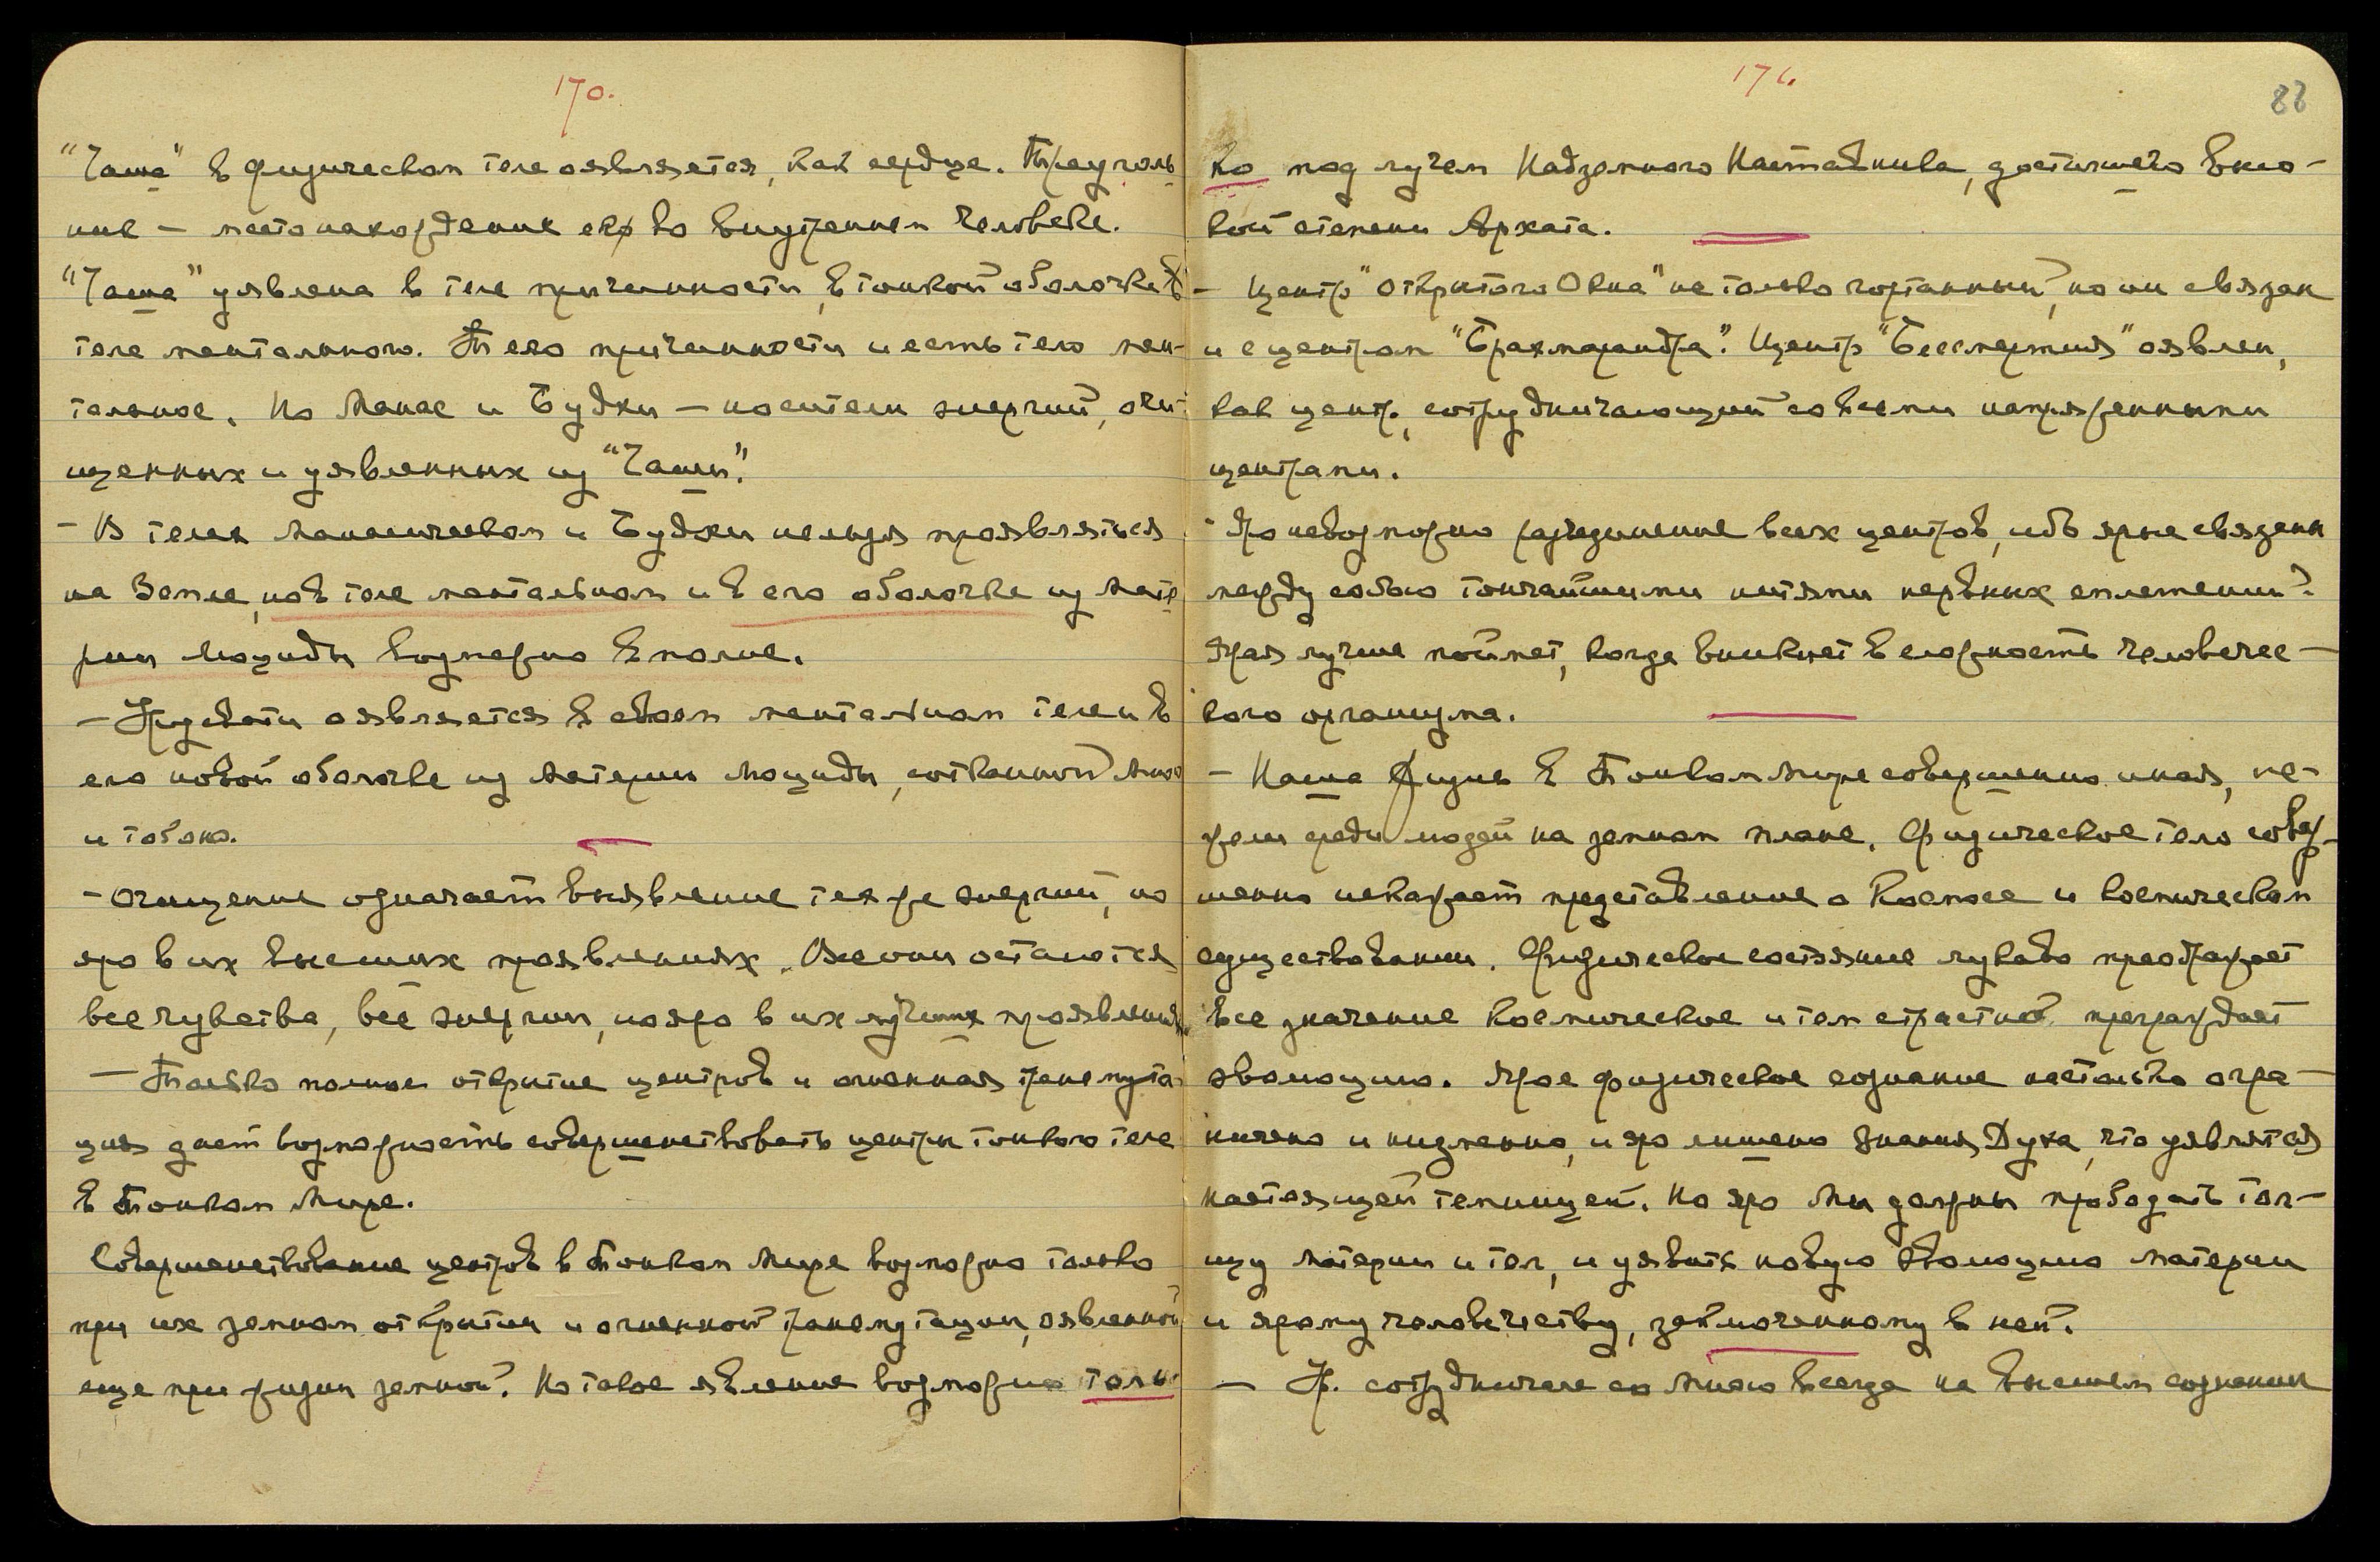 170.
"Чаша" в физическом теле оявляется, как сердце. Треуголь
ник – место нахождения его во внутреннем человеке.
"Чаша" уявлена в теле причинности, в тонкой оболочке в
теле ментального. Тело причинности и есть тело мен-
тальное. Но Манас и Будхи – носители энергий, очи-
щенных и уявленных из "Чаши".
– В телах Манасическом и Будхи нельзя проявляться
на Земле, но в теле ментальном и в его оболочке из мате
рии Люциды возможно вполне.
– Урусвати оявляется в своем ментальном теле и в
его новой оболочке из материи Люциды, сотканной Мною
и тобою.
– Очищение означает выявление тех же энергий, но
яро в их высших проявлениях. Все они остаются
все чувства, все энергии, но яро в их лучших проявлениях
– Только полное открытие центров и огненная трансмута
ция дает возможность совершенствовать центры тонкого тела
в Тонком Мире.
Совершенствование центров в Тонком Мире возможно только
при их земном открытии и огненной трансмутации, оявленной
еще при жизни земной. Но такое явление возможно толь
171.
88
ко под лучем Надземного Наставника, достигшего высо-
кой степени Архата.
– Центр "Открытого Окна" не только гортанный, но он связан
и с центром "Брахмарандра". Центр "Бессмертия" оявлен,
как центр, сотрудничающий со всеми напряженными
центрами.
Яро невозможно разъединение всех центров, ибо ярые связаны
между собою тончайшими нитями нервных сплетений.
Ярая лучше поймет, когда вникнет в сложность человечес-
кого организма.
– Наша Жизнь в Тонком Мире совершенно иная, не-
жели среди людей на земном плане. Физическое тело совер-
шенно искажает представление о Космосе и космическом
существовании. Физическое состояние лукаво преображает
все значение космическое и тем страстно преграждает
эволюцию. Ярое физическое сознание настолько огра-
ничено и низменно, и яро лишено Знания Духа, что уявляется
настоящей темницей. Но яро Мы должны прободать тол-
щу материи и тел, и уявить новую эволюцию материи
и ярому человечеству, заключенному в ней.
– Ур. сотрудничала со Мною всегда на высшем сознании